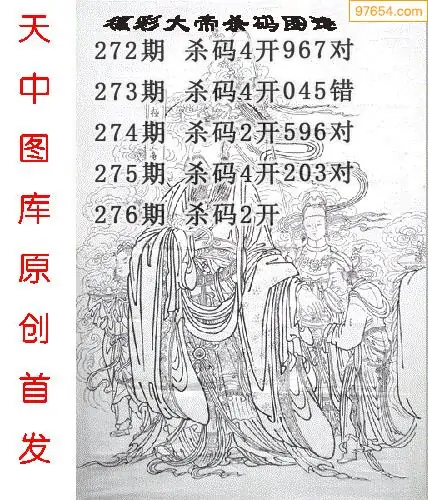 97654.com
福彩大帝杀码图迷
272期 杀码4开967对
273期 杀码4开045错
274期 杀码2开596对
275期 杀码4开203对
276期 杀码2开
天中图库原创首发